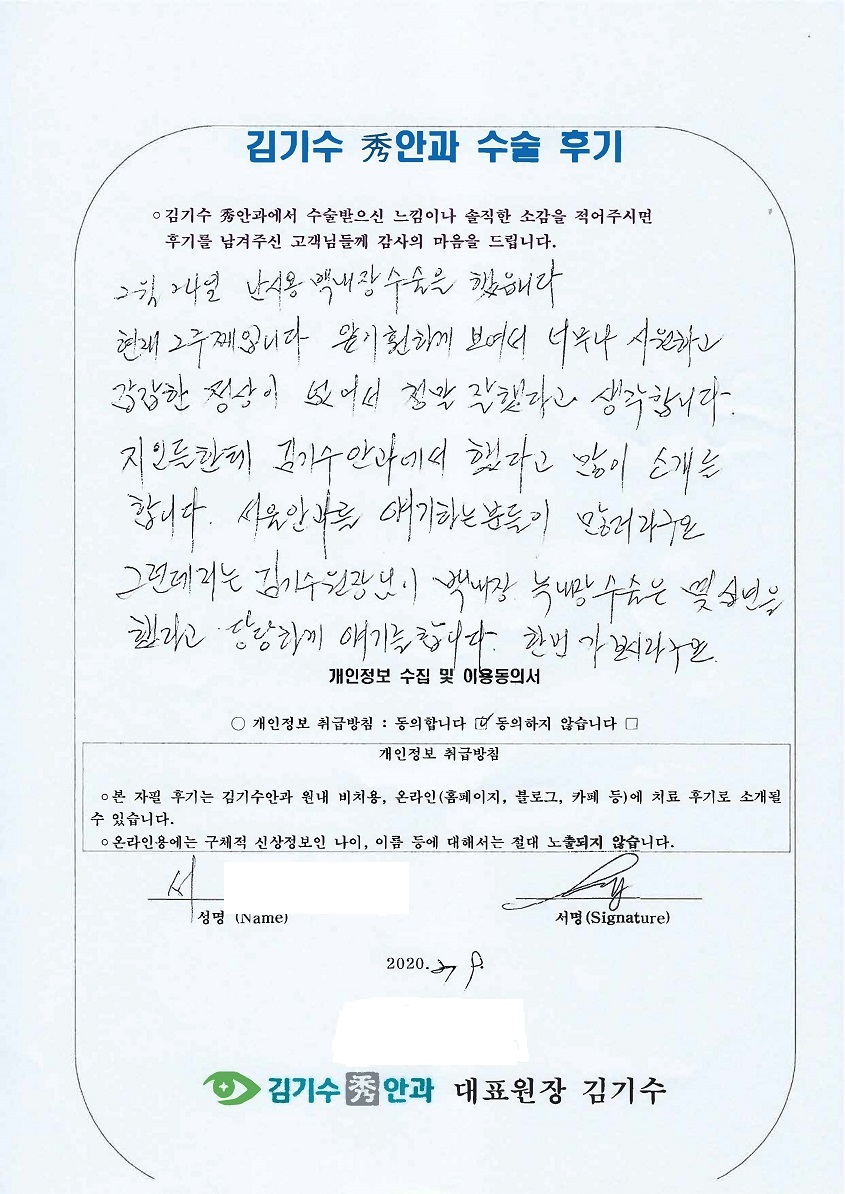 김기수 秀안과 수술 후기
○ 김기수 秀안과에서 수술받으신 느낌이나 솔직한 소감을 적어주시면
후기를 남겨주신 고객님들께 감사의 마음을 드립니다.
2월 24일 난시용 백내장수술을 했습니다
현재 2주째입니다 완기 훤하게 보여서 너무나 시원하고
갑갑한 증상이 없어서 정말 잘했다고 생각합니다.
지인들한테 김기수안과에서 했다고 많이 소개를
합니다. 서울안과를 얘기하는분들이 많더라구요
그런데 저는 김기수원장님이 백내장 녹내장수술은 몇십년을
했다고 당당하게 얘기를 합니다. 한번 가보시라구요.
개인정보 수집 및 이용동의서
○ 개인정보 취급방침 : 동의합니다 ☑ 동의하지 않습니다 □
개인정보 취급방침
○본 자필 후기는 김기수안과 원내 비치용, 온라인(홈페이지, 블로그, 카페 등)에 치료 후기로 소개될
수 있습니다.
○온라인용에는 구체적 신상정보인 나이, 이름 등에 대해서는 절대 노출되지 않습니다.
서
성명 (Name) 서명(Signature)
2020.
김기수 秀 안과 대표원장 김기수